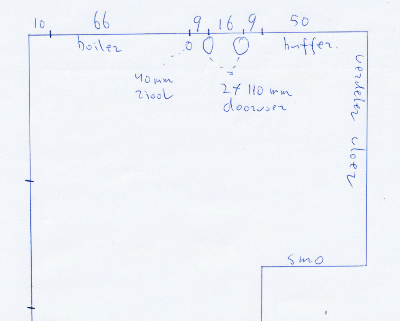 10 66 9 16 9 50
boiler
buffer.
40mm
riool
2x 110 mm
doorvoer
verdeler vloer
smo